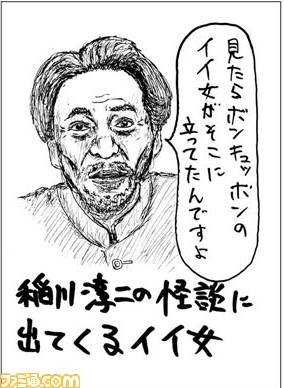 見たらボンキュッボンの
イイ女がそこに
立ってたんですよ
稲川淳二の怪談に
出てくるイイ女
ファミ通.com